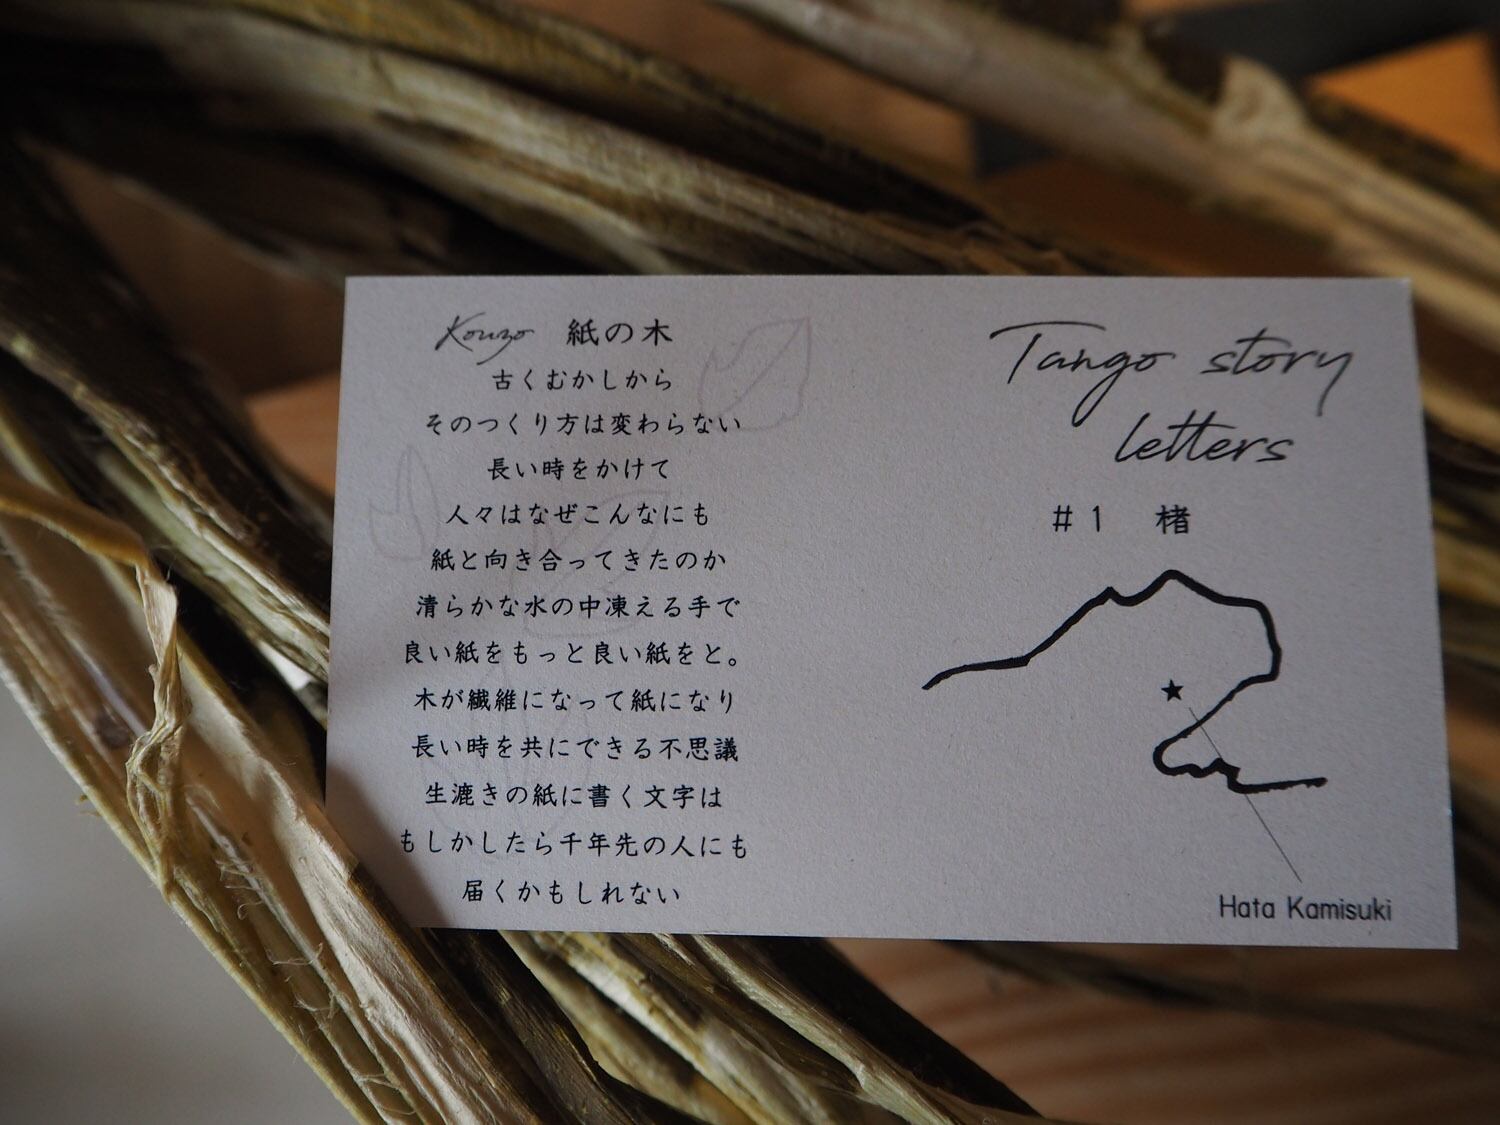 Kouzo 紙の木
古くむかしから
そのつくり方は変わらない
長い時をかけて
人々はなぜこんなにも
紙と向き合ってきたのか
清らかな水の中凍える手で
良い紙をもっと良い紙をと。
木が繊維になって紙になり
長い時を共にできる不思議
生漉きの紙に書く文字は
もしかしたら千年先の人にも
届くかもしれない
Tango story
letters
#1 楮
Hata Kamisuki